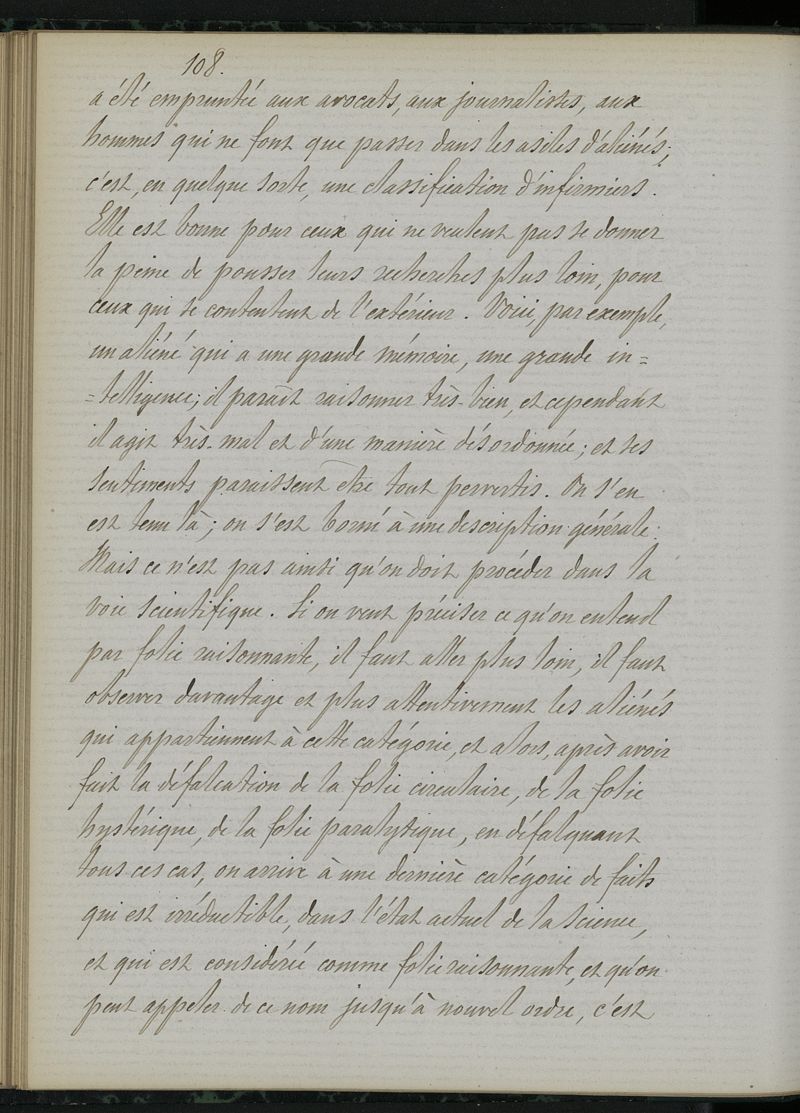 108.
a été empruntée aux avocats, aux journalistes, aux
hommes qui ne font que passer dans les asiles d'aliénés;
c'est, en quelque sorte, une classification d'infirmiers.
Elle est bonne pour ceux qui ne veulent pas se donner
la peine de pousser leurs recherches plus loin, pour
ceux qui se contentent de l'extérieur. Voici, par exemple,
un aliéné qui a une grande mémoire, une grande in=
=telligence; il paraît raisonner très-bien, et cependant
il agit très-mal et d'une manière désordonnée; et ses
sentiments paraissent être tout pervertis. On s'en
est tenu là; on s'est borné à une description générale.
Mais ce n'est pas ainsi qu'on doit procéder dans la
voie scientifique. Si on veut préciser ce qu'on entend
par folie raisonnante, il faut aller plus loin, il faut
observer davantage et plus attentivement les aliénés
qui appartiennent à cette catégorie, et alors, après avoir
fait la défalcation de la folie circulaire, de la folie
hystérique, de la folie paralytique, en défalquant
tous ces cas, on arrive à une dernière catégorie de faits
qui est irréductible, dans l'état actuel de la science,
et qui est considérée comme folie raisonnante, et qu'on
peut appeler de ce nom jusqu'à nouvel ordre, c'est